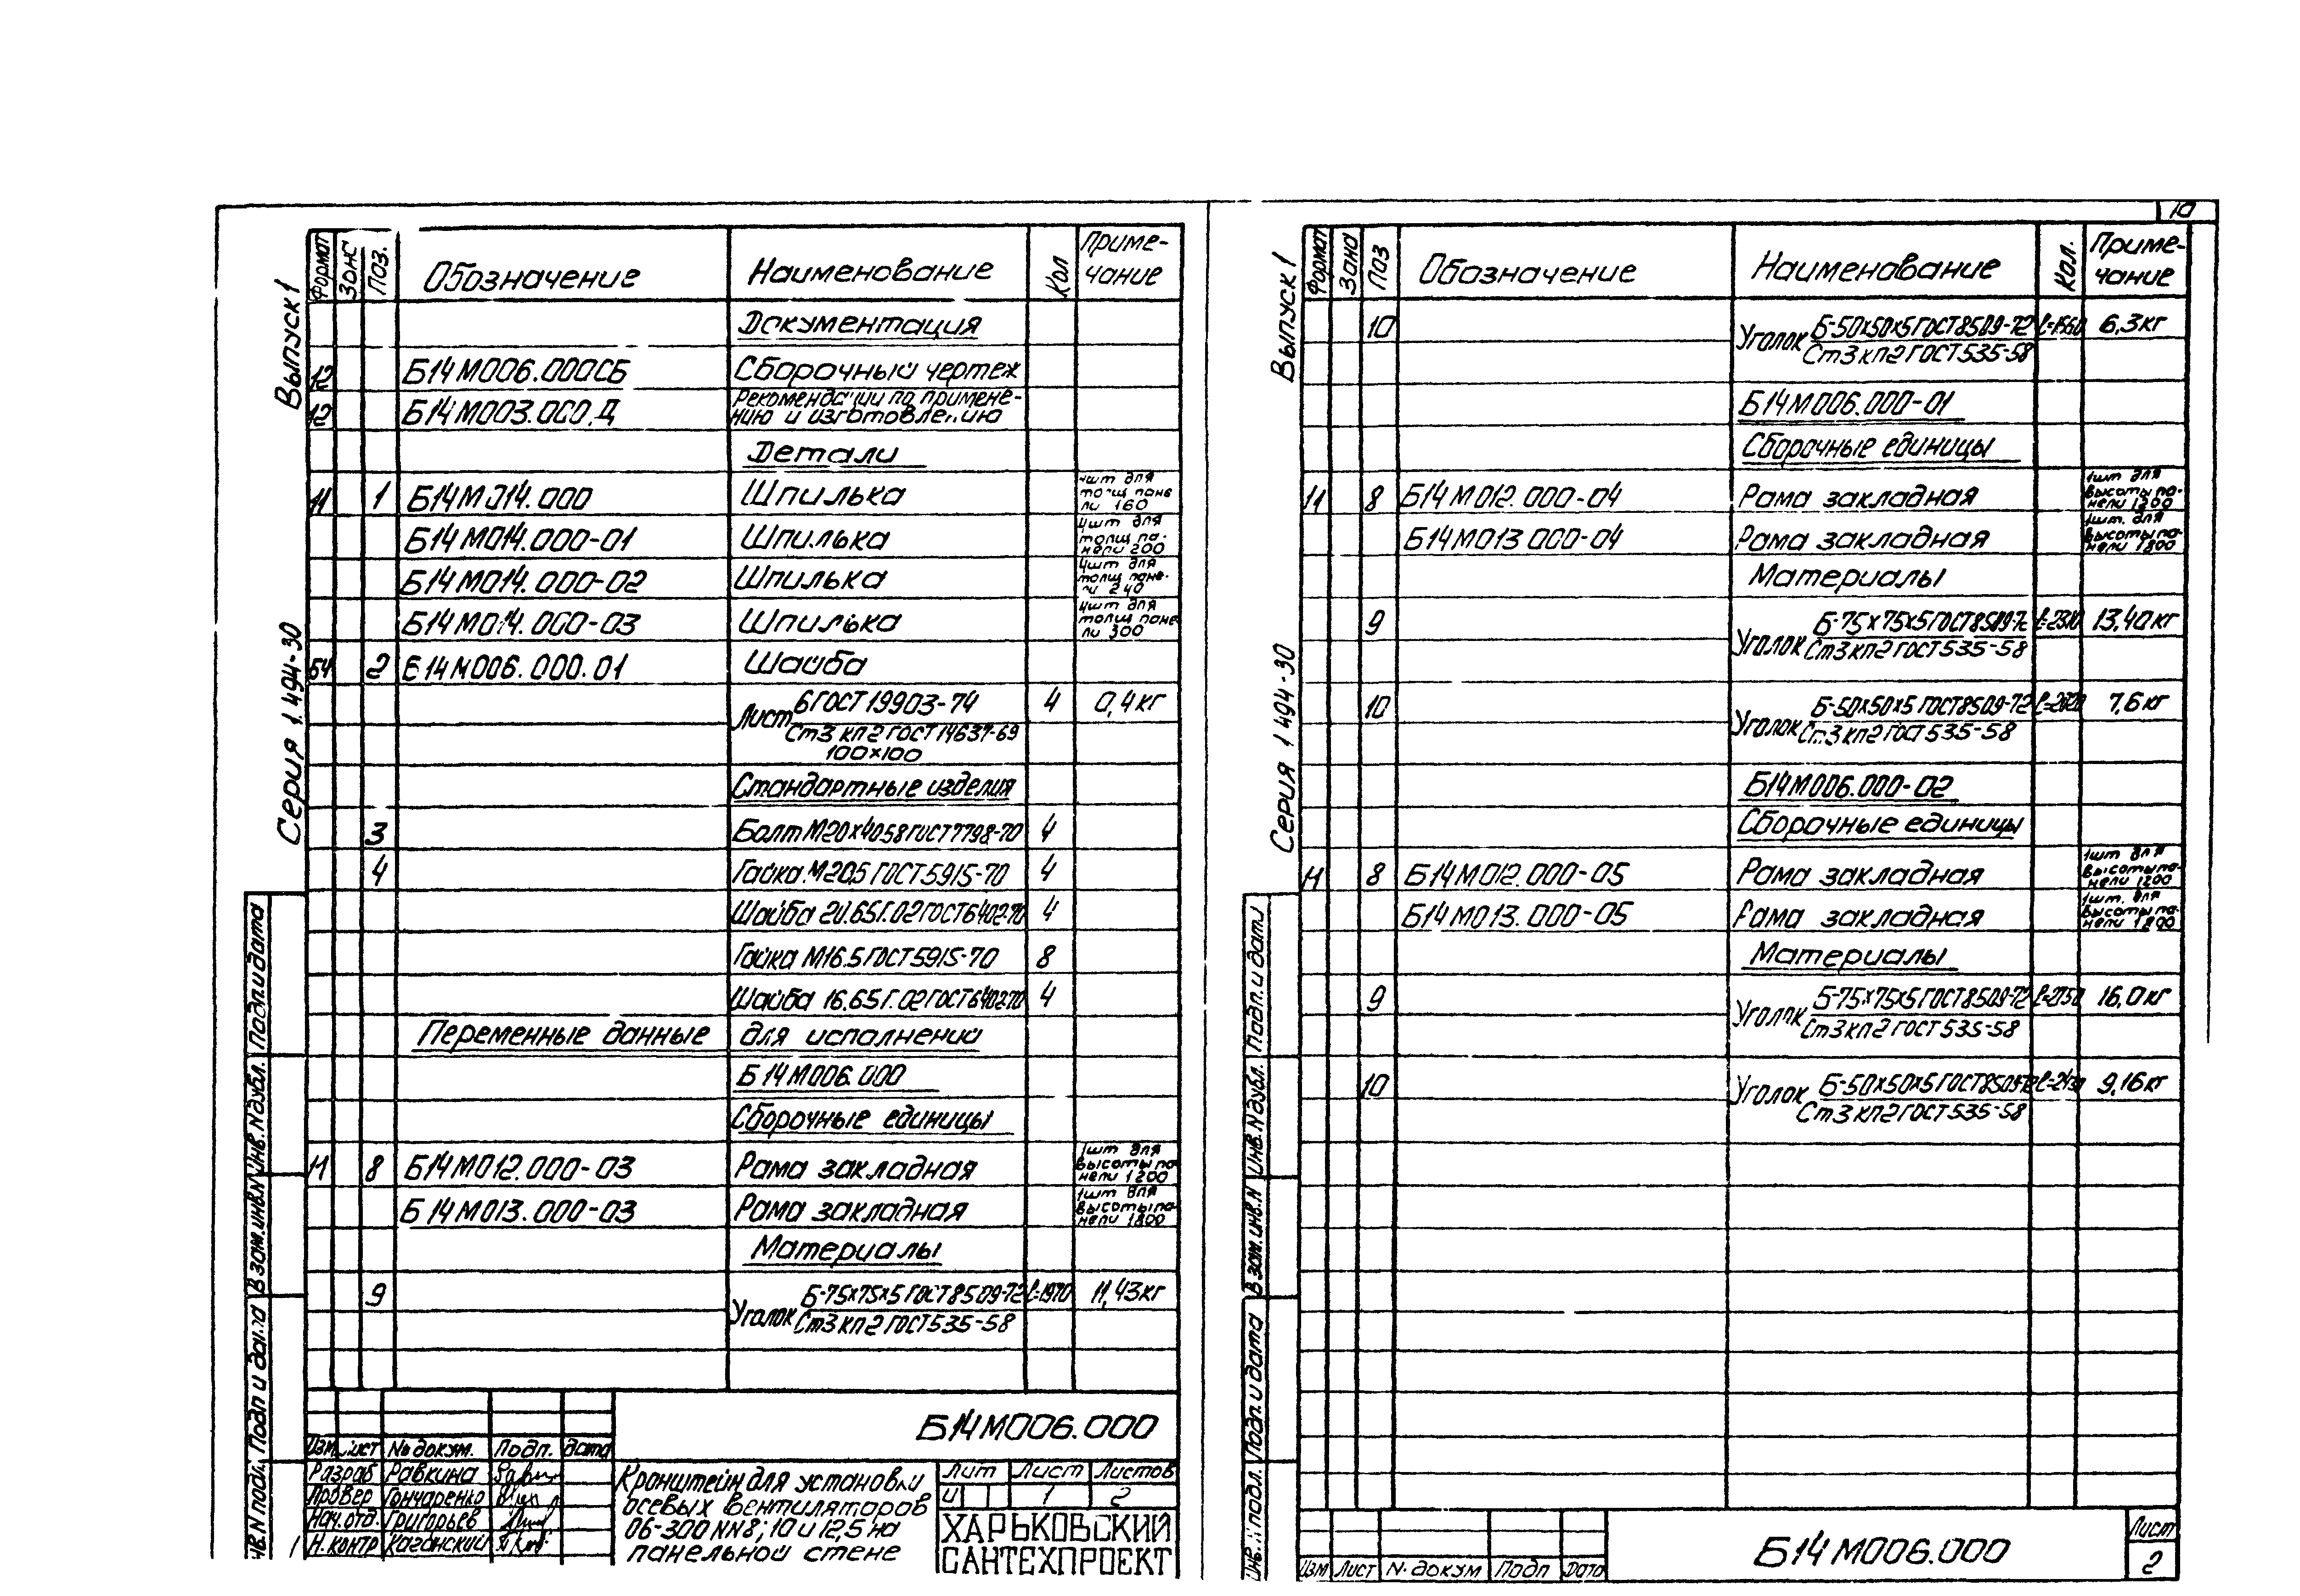 10
Выпуск 1
Серия 1.494-30
Формат Зона Поз. Обозначение Наименование Кол Приме-
чание
Документация
12 Б14М006.000СБ Сборочный чертеж
12 Б14М003.000.Д Рекомендации по примене-
нию и изготовлению
Детали
11 1 Б14М014.000 Шпилька 4шт для
толщ пане
ли 160
Б14М014.000-01 Шпилька 4шт для
толщ па-
нели 200
Б14М014.000-02 Шпилька 4шт для
толщ пане-
ли 240
Б14М014.000-03 Шпилька 4шт для
толщ пане
ли 300
Б4 2 Б14М006.000.01 Шайба
Лист 6 ГОСТ 19903-74 4 0,4кг
Ст3 кп2 ГОСТ 14637-69
100×100
Стандартные изделия
3 Болт М20×40.58 ГОСТ 7798-70 4
4 Гайка М20.5 ГОСТ 5915-70 4
Шайба 20.65Г.02 ГОСТ 6402-70 4
Гайка М16.5 ГОСТ 5915-70 8
Шайба 16.65Г.02 ГОСТ 6402-70 4
Переменные данные для исполнений
Б14М006.000
Сборочные единицы
11 8 Б14М012.000-03 Рама закладная 1шт для
высоты па-
нели 1200
Б14М013.000-03 Рама закладная 1шт для
высоты па-
нели 1800
Материалы
9 Уголок Б-75×75×5 ГОСТ 8509-72 ℓ=1970 11,43кг
Ст3 кп2 ГОСТ 535-58
Б14М006.000
Изм Лист № докум. Подп. дата
Разраб Равкина
Провер Гончаренко
Нач.отд. Григорьев
Н.контр Каганский
Кронштейн для установки
осевых вентиляторов
06-300 NN8; 10 и 12,5 на
панельной стене
Лит Лист Листов
И 1 2
ХАРЬКОВСКИЙ
САНТЕХПРОЕКТ
Подп. и дата
Инв. N дубл.
Взам. инв. N
Подп и дата
Инв. N подл.
Выпуск 1
Серия 1 494-30
Формат Зона Поз Обозначение Наименование Кол. Приме-
чание
10 Уголок Б-50×50×5 ГОСТ 8509-72 ℓ=1560 6,3кг
Ст3 кп2 ГОСТ 535-58
Б14М006.000-01
Сборочные единицы
11 8 Б14М012.000-04 Рама закладная 1шт для
высоты па-
нели 1200
Б14М013.000-04 Рама закладная 1шт. для
высоты па-
нели 1800
Материалы
9 Уголок Б-75×75×5 ГОСТ 8509-72 ℓ=2310 13,40кг
Ст3 кп2 ГОСТ 535-58
10 Уголок Б-50×50×5 ГОСТ 8509-72 7,6кг
Ст3 кп2 ГОСТ 535-58
Б14М006.000-02
Сборочные единицы
11 8 Б14М012.000-05 Рама закладная 1шт для
высоты па-
нели 1200
Б14М013.000-05 Рама закладная 1шт. для
высоты па-
нели 1800
Материалы
9 Уголок Б-75×75×5 ГОСТ 8509-72 ℓ=2750 16,0кг
Ст3 кп2 ГОСТ 535-58
10 Уголок Б-50×50×5 ГОСТ 8509-72 9,16кг
Ст3 кп2 ГОСТ 535-58
Подп. и дата
Инв. N дубл.
Взам. инв. N
Подп. и дата
Инв. N подл.
Изм Лист N. докум Подп Дата
Б14М006.000
Лист
2